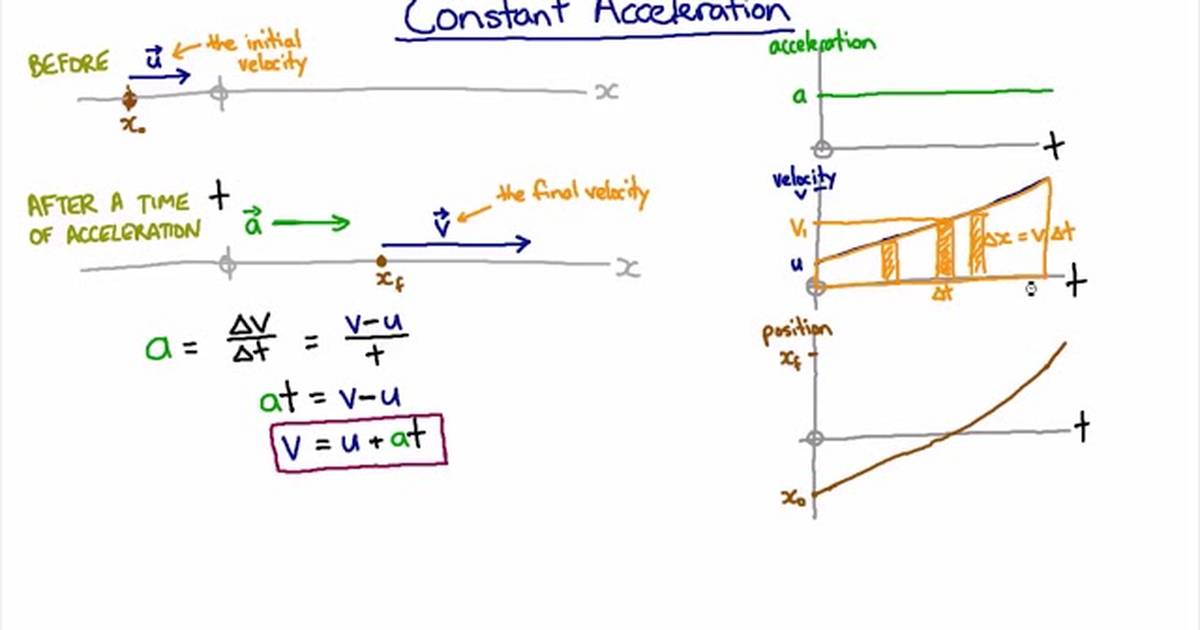 Constant Acceleration
BEFORE
u⃗
the initial
velocity
x₀
x
AFTER A TIME t
OF ACCELERATION
a⃗
v⃗
the final velocity
x_f
x
a = Δv/Δt = (v-u)/t
at = v-u
v = u + at
acceleration
a
t
velocity
v
V₁
u
Δx = v₁Δt
Δt
t
position
x_f
t
x₀